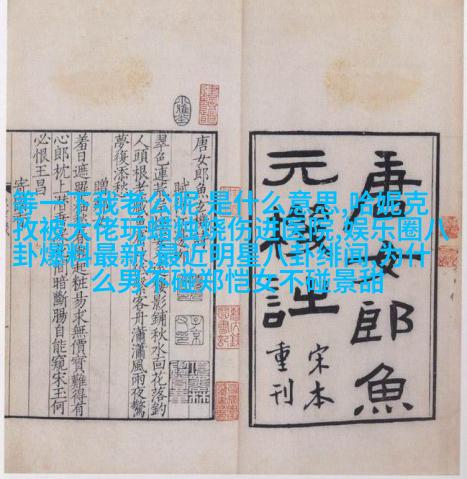 等一下我老公呢,是什么意思,哈妮克
孜被大佬玩蜡烛烧伤进医院,娱乐圈八
卦爆料最新,最近明星八卦绯闻,为什
么男不碰郑恺女不碰景甜
唐女郎魚
元機詩
宋本
重刊
唐女郎魚玄機詩
賦
翠色連荒影鋪秋水面花落釣
人頭根老藏客舟瀟瀟風雨夜驚
夢復添愁
贈
羞日遮羅起粧易求無價寶難得有
心郎枕上間暗斷腸自能窺宋玉何
必恨王昌
寄